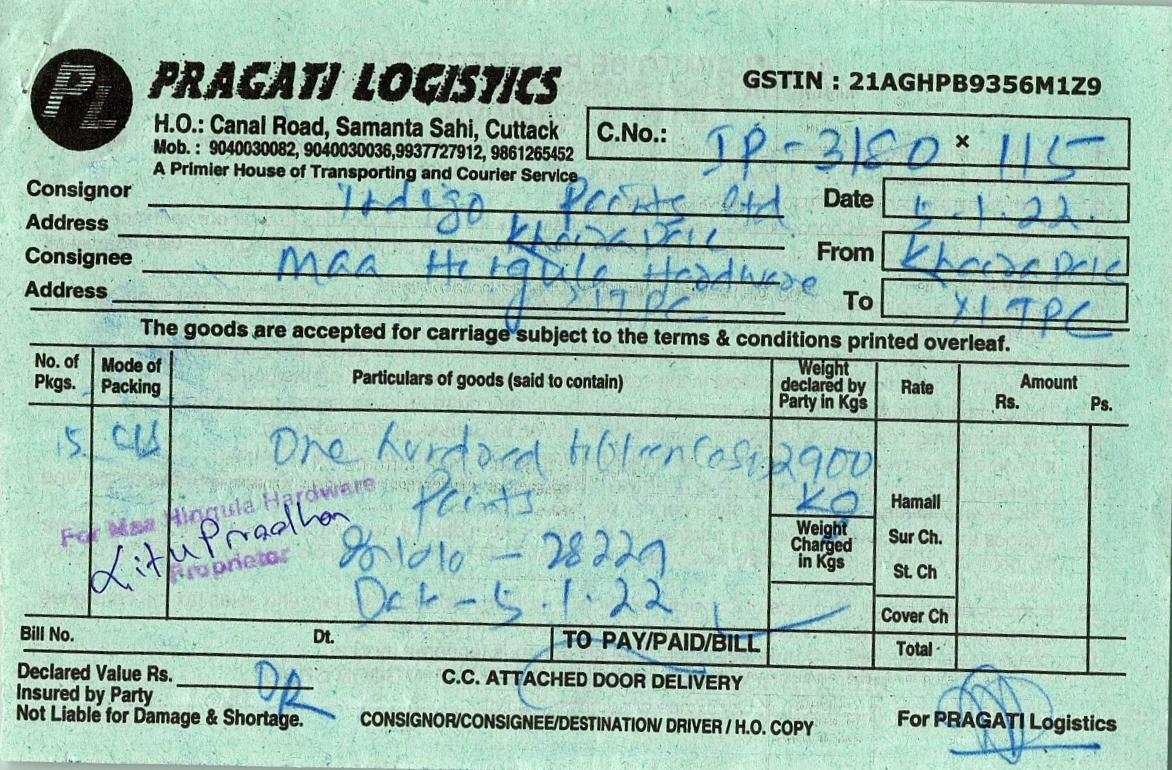 PL
PRAGATI LOGISTICS
GSTIN : 21AGHPB9356M1Z9
H.O.: Canal Road, Samanta Sahi, Cuttack
Mob. : 9040030082, 9040030036,9937727912, 9861265452
A Primier House of Transporting and Courier Service
C.No.: IP-3180 × 115
Consignor Indigo Paints Ltd
Date 5.1.22.
Address
Consignee Maa Hardware
From
Address
To
The goods are accepted for carriage subject to the terms & conditions printed overleaf.
No. of Pkgs. Mode of Packing Particulars of goods (said to contain) Weight declared by Party in Kgs Rate Amount Rs. Ps.
One hundred 2900
Paints KG
For Maa Hingula Hardware
Litu Pradhan
Proprietor
Hamall
Weight Charged in Kgs
Sur Ch.
St. Ch
5.1.22
Cover Ch
Bill No. Dt. TO PAY/PAID/BILL Total
Declared Value Rs.
C.C. ATTACHED DOOR DELIVERY
Insured by Party
Not Liable for Damage & Shortage.
CONSIGNOR/CONSIGNEE/DESTINATION/ DRIVER / H.O. COPY
For PRAGATI Logistics